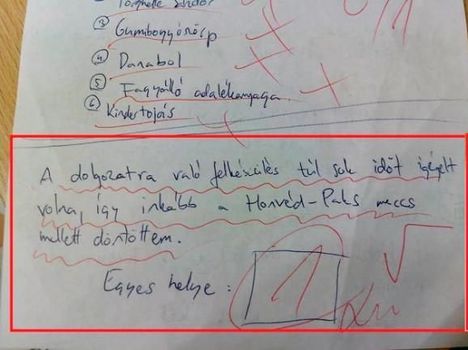 Törghelle Sándor
③ Gumibogyószörp
④ Danabol
⑤ Fagyálló adalékanyaga
⑥ Kindertojás
A dolgozatra való felkészülés túl sok időt igényelt
volna, így inkább a Honvéd-Paks meccs
mellett döntöttem.
Egyes helye:
1